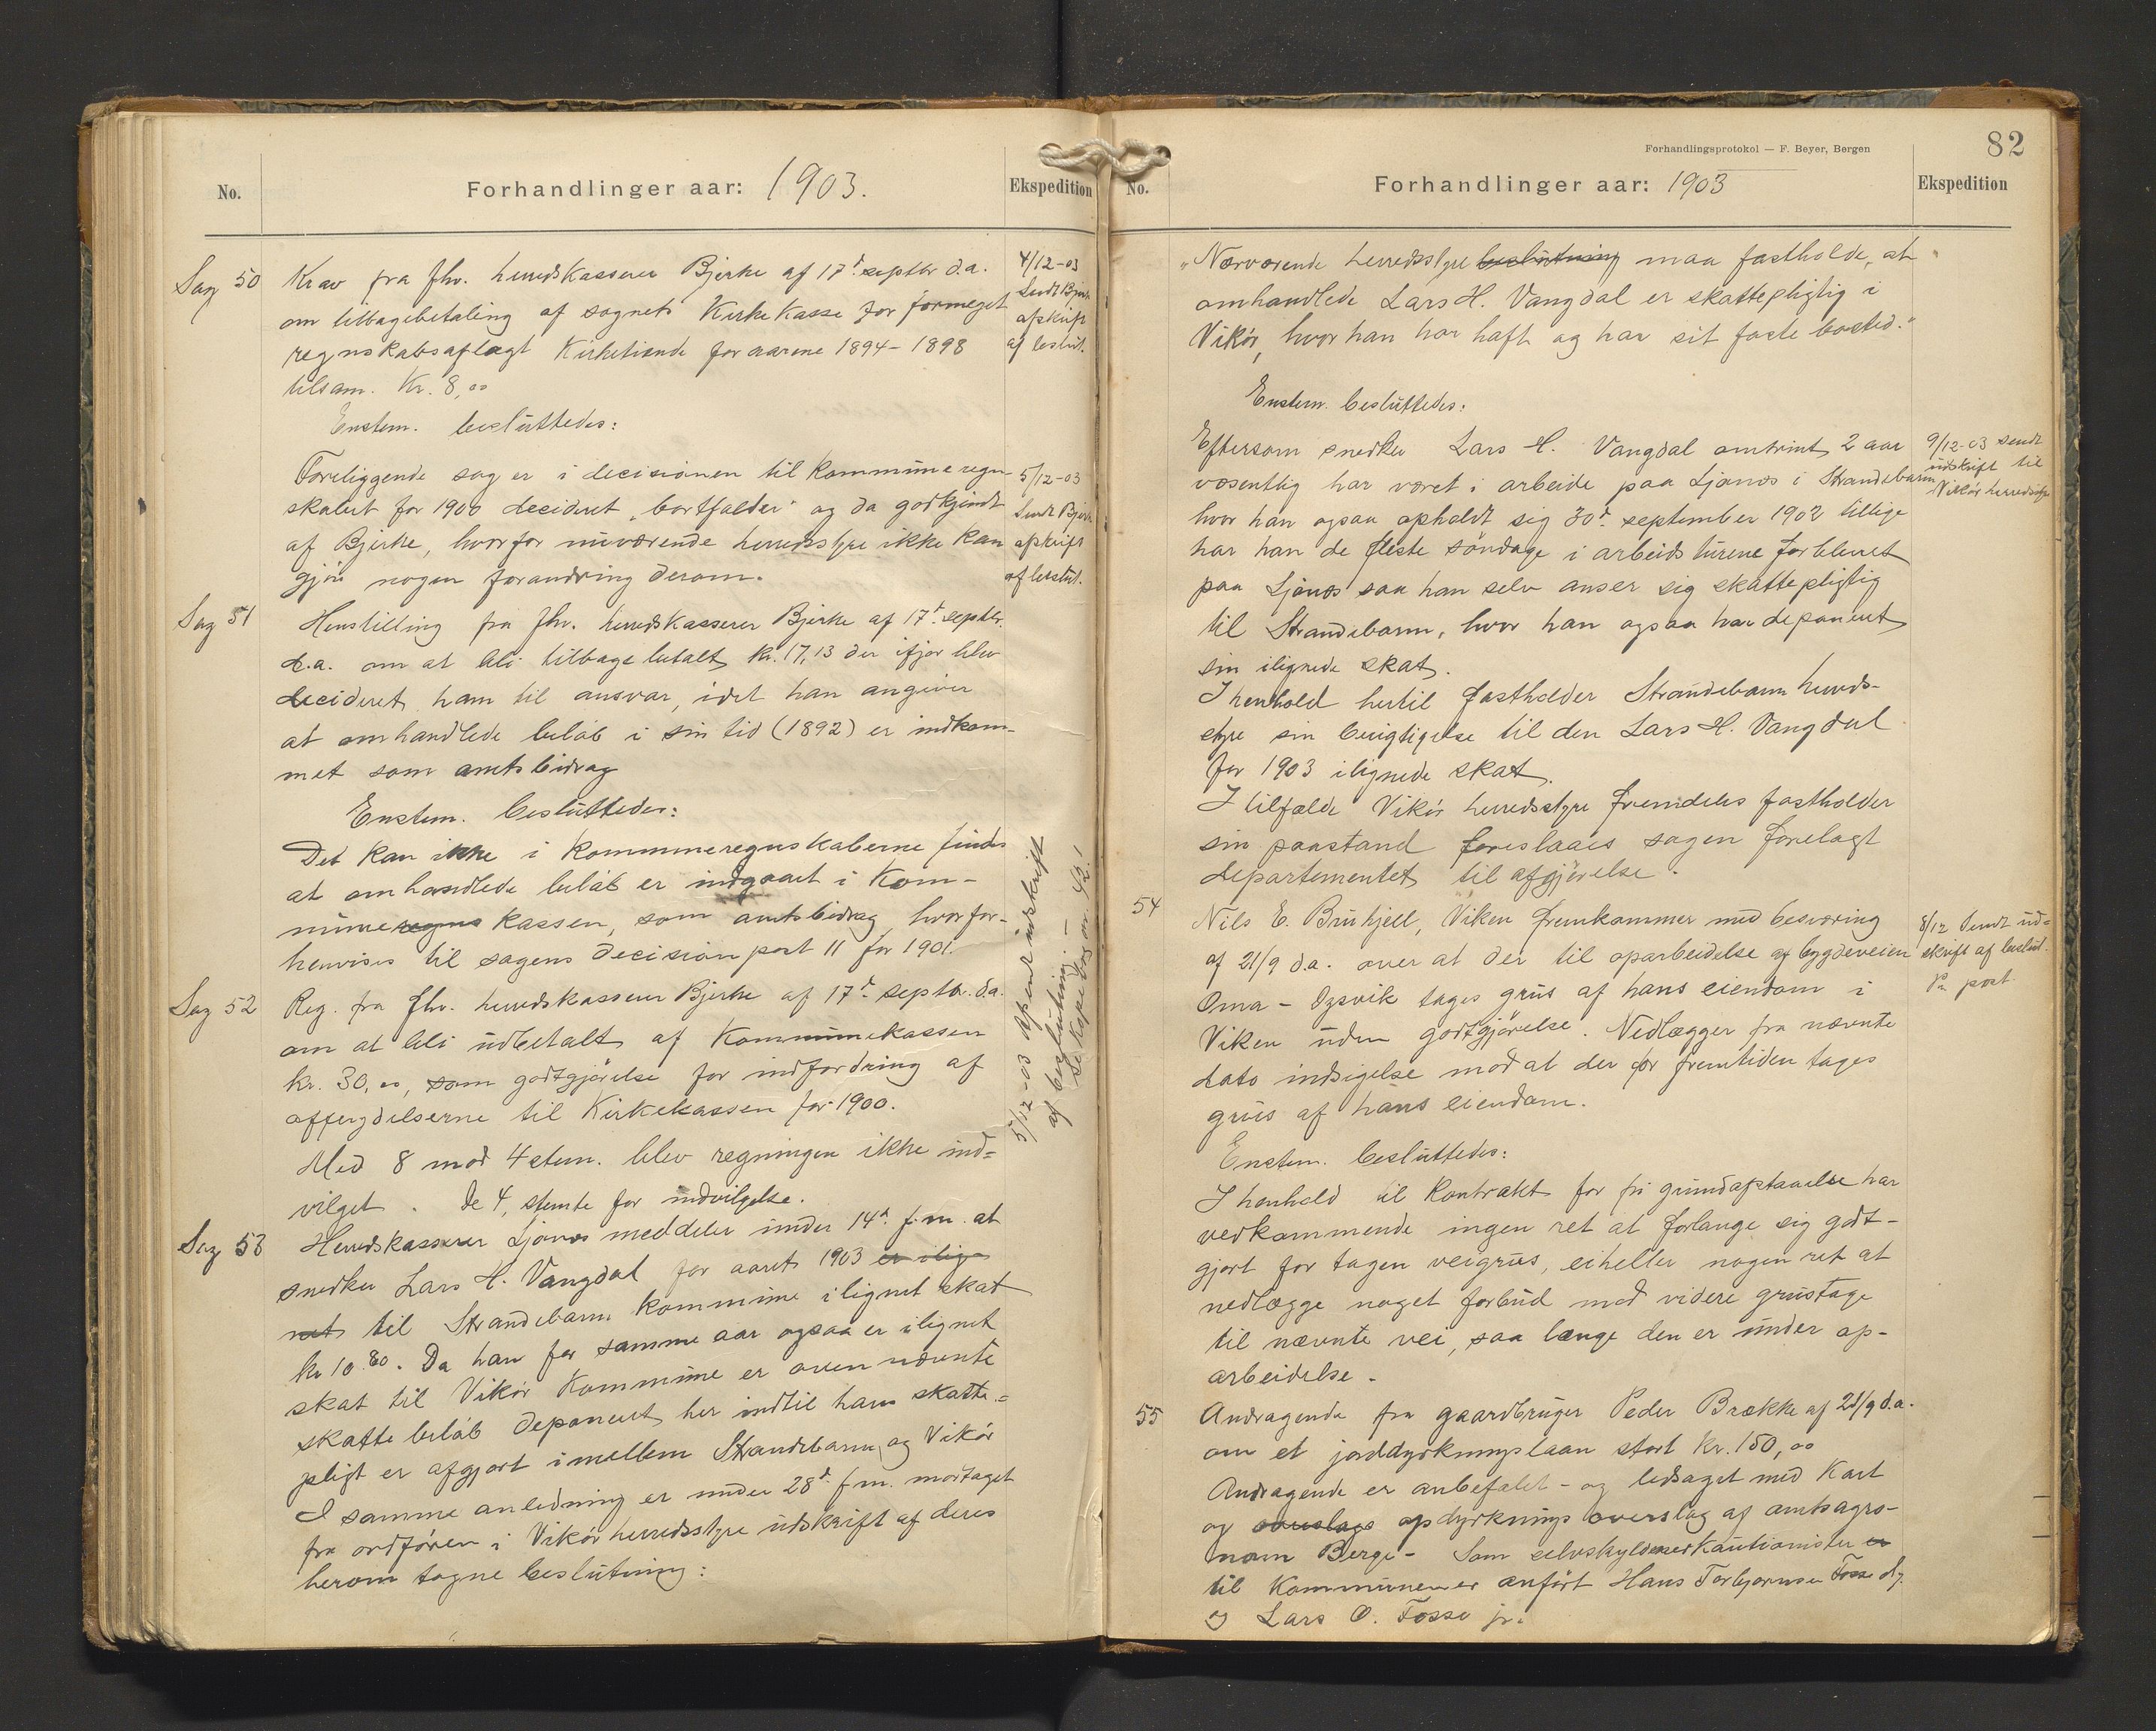 No.
Forhandlinger aar: 1903.
Ekspedition
Sag 50
Krav fra fhv. herredskasserer Bjerke af 17d. septbr d.a.
om tilbagebetaling af sognets Kirkekasse for formeget
regnskabsaflagt Kirketiende for aarene 1894-1898
tilsam. Kr. 8,00
4/12-03
Sendt Bjerke
afskrift
af beslut.
Enstem. besluttedes:
Foreliggende sag er i decisionen til Kommuneregn-
skabet for 1900 decideret "bortfalder" og da godkjendt
af Bjerke, hvorfor nuværende herredsstyre ikke kan
gjøre nogen forandring derom.
5/12-03
Sendt Bjerke
afskrift
af beslut.
Sag 51
Henstilling fra fhv. herredskasserer Bjerke af 17d. septbr.
d.a. om at bli tilbagebetalt kr. 17,13 der ifjor blev
decideret ham til ansvar, idet han angiver
at omhandlede beløb i sin tid (1892) er indkom-
met som amtsbidrag
Enstem. besluttedes:
Det kan ikke i kommuneregnskaberne findes
at omhandlede beløb er indgaaet i Kom-
muneregns kassen, som amtsbidrag hvorfor-
henvises til sagens decision post 11 for 1901.
Sag 52
Reg. fra fhv. herredskasserer Bjerke af 17d. septbr. d.a.
om at bli udbetalt af Kommunekassen
kr. 30,00, som godtgjørelse for indfordring af
affergdelserne til Kirkekassen for 1900.
Med 8 mod 4 stem. blev regningen ikke ind=
vilget. De 4, stemte for indvilgelse.
5/12-03 Afsendt udskrift
af beslutning. -
Se kopibog nr. 42.1
Sag 53
Herredskasserer Ljønes meddeler under 14d. f.m. at
snedker Lars H. Vangdal for aaret 1903 er ilig-
net til Strandebarm kommune ilignet skat
kr 10.80. Da han for samme aar ogsaa er ilignet
skat til Vikør Kommune er ovennævnte
skattebeløb deponeret her indtil hans skatte-=
pligt er afgjort imellem Strandebarm og Vikør
I samme anledning er under 28d. f.m. modtaget
fra ordføren i Vikør herredsstyre udskrift af deres
herom tagne beslutning:
Forhandlingsprotokol — F. Beyer, Bergen
82
No.
Forhandlinger aar: 1903
Ekspedition
"Nærværende herredsstyre beslutning maa fastholde, at "
omhandlede Lars H. Vangdal er skattepligtig i
Vikør, hvor han har haft og har sit faste bosted."
Enstem. besluttedes:
Eftersom snedker Lars H. Vangdal omtrint 2 aar
væsentlig har været i arbeide paa Ljønes i Strandebarm
hvor han ogsaa opholdt sig 30d. september 1902 tillige
har han de fleste søndage i arbeidsturene forblevet
paa Ljønes saa han selv anser sig skattepligtig
til Strandebarm, hvor han ogsaa har deponeret
sin ilignede skat.
9/12-03 sendt
udskrift til
Vikør herredsstyre
I henhold hertil fastholder Strandebarm herreds-
styre sin berigtigelse til den Lars H. Vangdal
for 1903 ilignede skat.
I tilfælde Vikør herredsstyre fremdeles fastholder
sin paastand foreslaaes sagen forelagt
departementet til afgjørelse.
54
Nils E. Bruhjell, Viken fremkommer med besværing
af 21/9 d.a. over at der til oparbeidelse af bygdeveien
Oma - Ogsvik tages grus af hans eiendom i
Viken uden godtgjørelse. Nedlægger fra nævnte
dato indsigelse mod at der for fremtiden tages
grus af hans eiendom.
8/12 Sendt ud=
skrift af beslut.
Pr. post.
Enstem. besluttedes:
I henhold til Kontrakt for fri grundafstaaelse har
vedkommende ingen ret at forlange sig godt-
gjort for tagen veigrus, eiheller nogen ret at
nedlægge noget forbud mod videre grustage
til nævnte vei, saa længe den er under op-
arbeidelse.
55
Andragende fra gaardbruger Peder Brække af 21/9 d.a.
om et jorddyrkningslaan stort kr. 150,00
Andragende er anbefalet - og ledsaget med Kart
og overslags opdyrknings overslag af amtsagro-
nom Berge - Som selvskyldnerkautionister er
til Kommunen er anført Hans Torbjørnsen Fosse
og Lars O. Fosse jr.